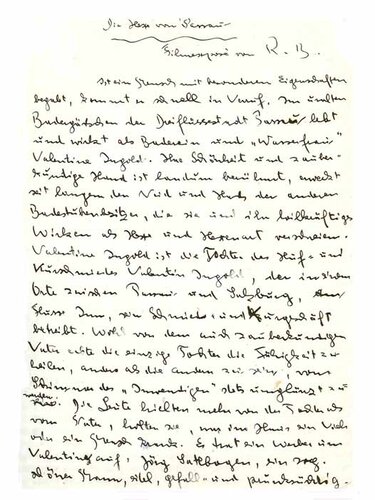 Die Hexe von Passau
Filmexposé von R. B.
Ist ein Mensch mit besonderen Eigenschaften
begabt, kommt er schnell in Verruf. Im uralten
Badegässchen der Dreiflüssestadt Passau lebt
und wirkt als Baderin und "Wasserfrau"
Valentine Ingold. Ihre Schönheit und zauber-
kundige Hand ist landum berühmt, erweckt
seit langem den Neid und Hass der anderen
Badestubenbesitzer, die sie und ihr heilkräftiges
Wirken als Hexe und Hexenart verschreien.
Valentine Ingold ist die Tochter des Huf- und
Kurschmiedes Valentin Ingold, der in einem
Orte zwischen Passau und Salzburg, am
Flusse Inn, sein Schmiede- und Kurgeschäft
betreibt. Wohl von dem auch zauberkundigen
Vater erbte die einzige Tochter die Fähigkeit zu
heilen, anders als die andern zu sein, vom
Schimmer des "Inwendigen" stets umglänzt zu
werden. Die Leute hielten mehr von der Tochter als
vom Vater, holten sie, was im Hause ein Vieh
oder ein Mensch krank. Es trat ein Werber um
Valentine auf: Jörg
schöner Mann, eitel, gefall- und prunksüchtig.